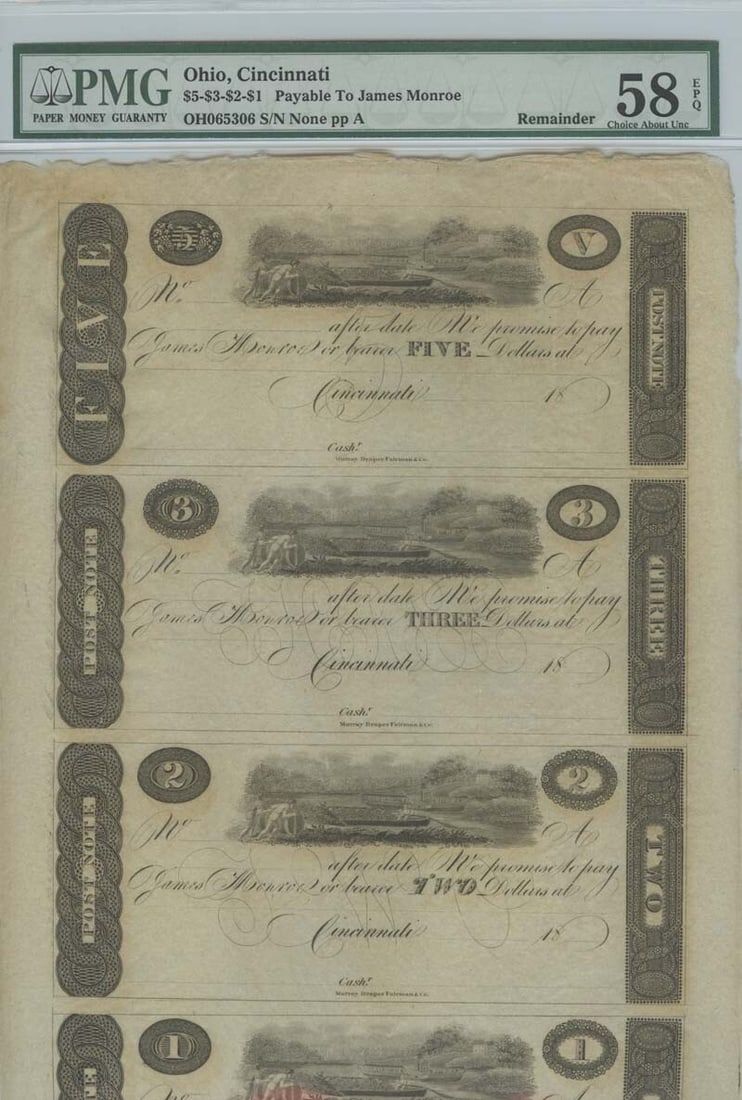 PMG
PAPER MONEY GUARANTY
Ohio, Cincinnati
$5-$3-$2-$1 Payable To James Monroe
OH065306 S/N None pp A
Remainder
58
EPQ
Choice About Unc
FIVE
5
V
POST NOTE
No. A
after date We promise to pay
James Monroe or bearer FIVE Dollars at
Cincinnati 18
Cashr.
Murray Draper Fairman & Co.
POST NOTE
3
3
THREE
No. A
after date We promise to pay
James Monroe or bearer THREE Dollars at
Cincinnati 18
Cashr.
Murray Draper Fairman & Co.
POST NOTE
2
2
TWO
No A
after date We promise to pay
James Monroe or bearer TWO Dollars at
Cincinnati 18
Cashr.
Murray Draper Fairman & Co.
TE
1
1